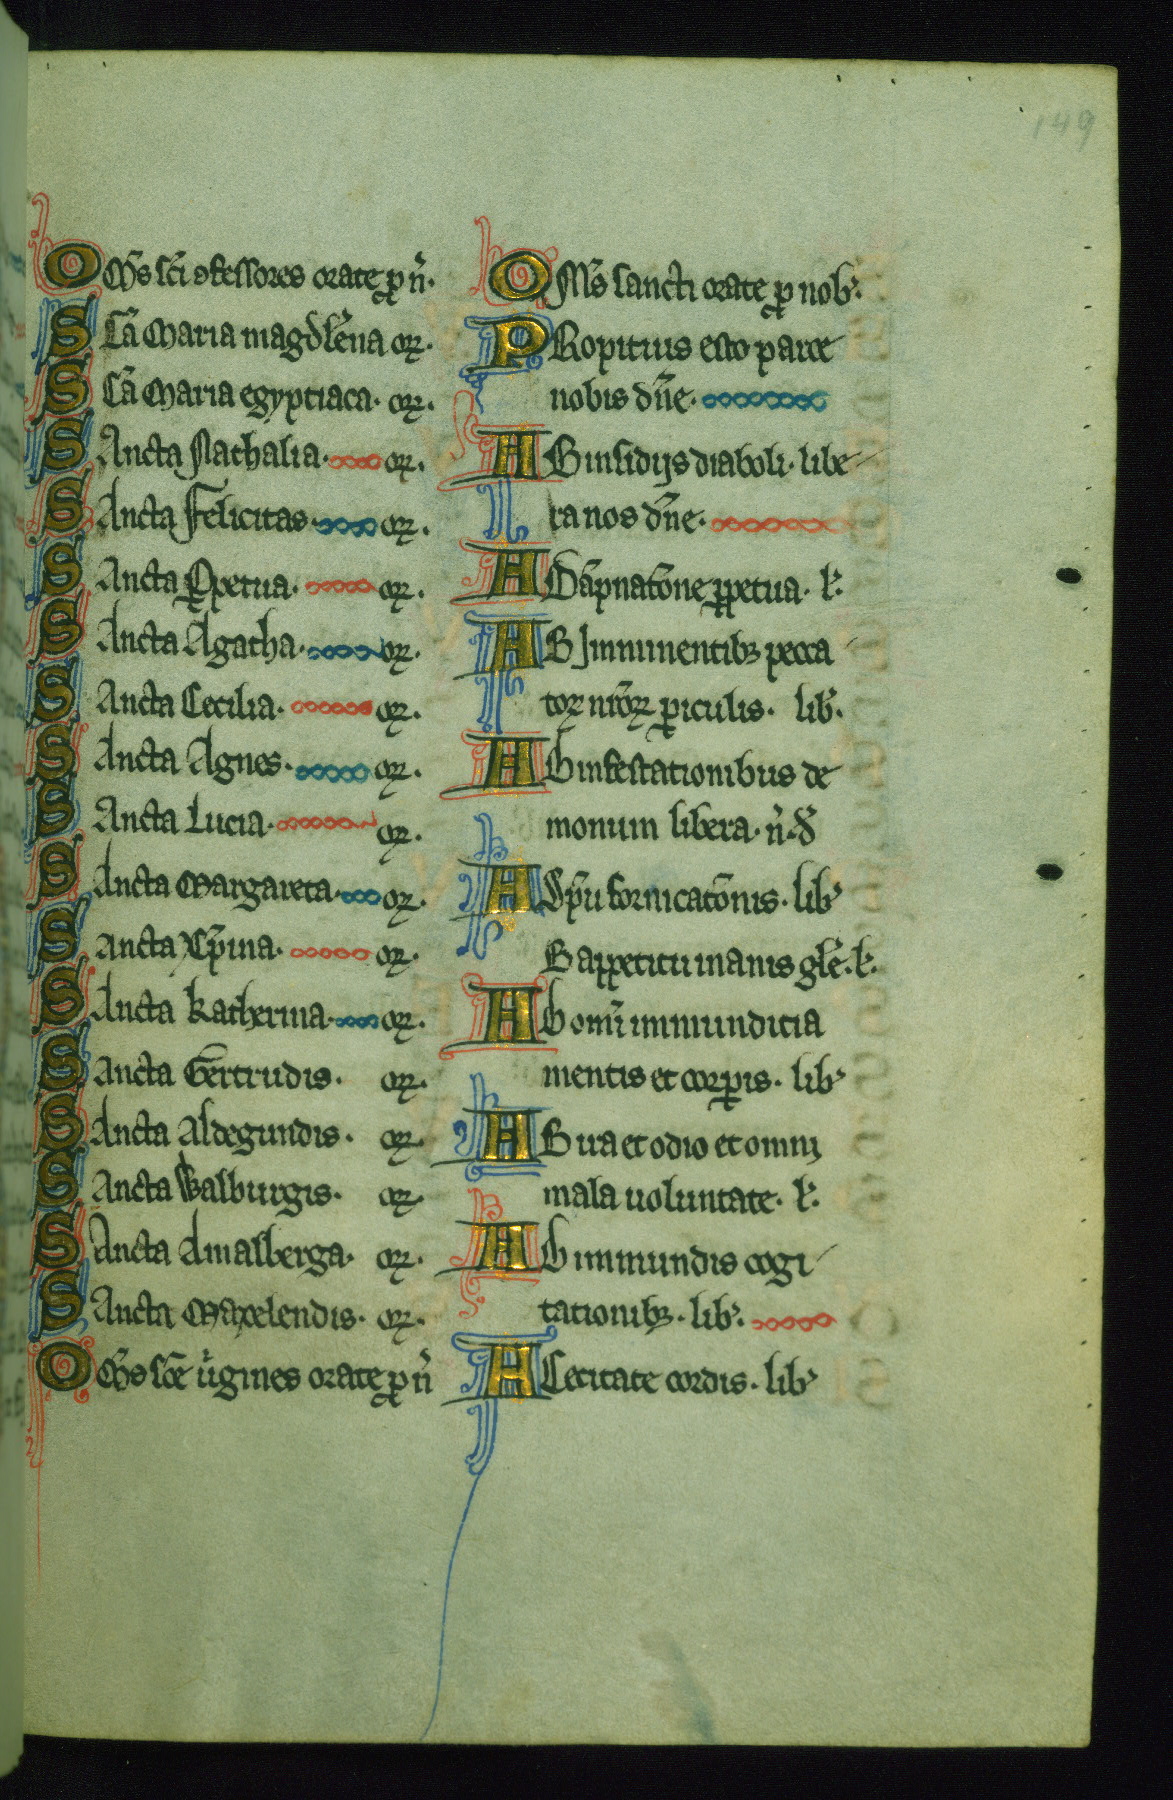 149
Om̄s sc̄i ɔfessores orate ꝓ n̄.
Sc̄a Maria magdl̄ena orꝫ.
Sc̄a Maria egyptiaca. orꝫ.
Sancta Nathalia. orꝫ.
Sancta Felicitas. orꝫ.
Sancta Ꝑpetua. orꝫ.
Sancta Agatha. orꝫ.
Sancta Cecilia. orꝫ.
Sancta Agnes. orꝫ.
Sancta Lucia. orꝫ.
Sancta Margareta. orꝫ.
Sancta Xp̄ina. orꝫ.
Sancta Katherina. orꝫ.
Sancta Gērtrudis. orꝫ.
Sancta Aldegundis. orꝫ.
Sancta Walburgis. orꝫ.
Sancta Amalberga. orꝫ.
Sancta Maxelendis. orꝫ.
Om̄s sc̄e u̇gines orate ꝓ n̄
Om̄s sancti orate ꝓ nob̾.
PRopitius esto parce
nobis dn̄e.
AB insidijs diaboli. libe
ra nos dn̄e.
A dāpnatōne ꝑpetua. l̾.
AB Imminentibꝫ pecca
toꝝ nr̄oꝝ ꝑiculis. lib̾.
AB infestationibus de
monum libera. n̄. d̾
A sp̄u fornicatōnis. lib̾
B appetitu inanis gl̄e. l̾.
AB omī immunditia
mentis et corꝑis. lib̾
AB ira et odio et omni
mala uoluntate. l̾.
AB immundis cogi
tationibꝫ. lib̾.
A Cecitate cordis. lib̾